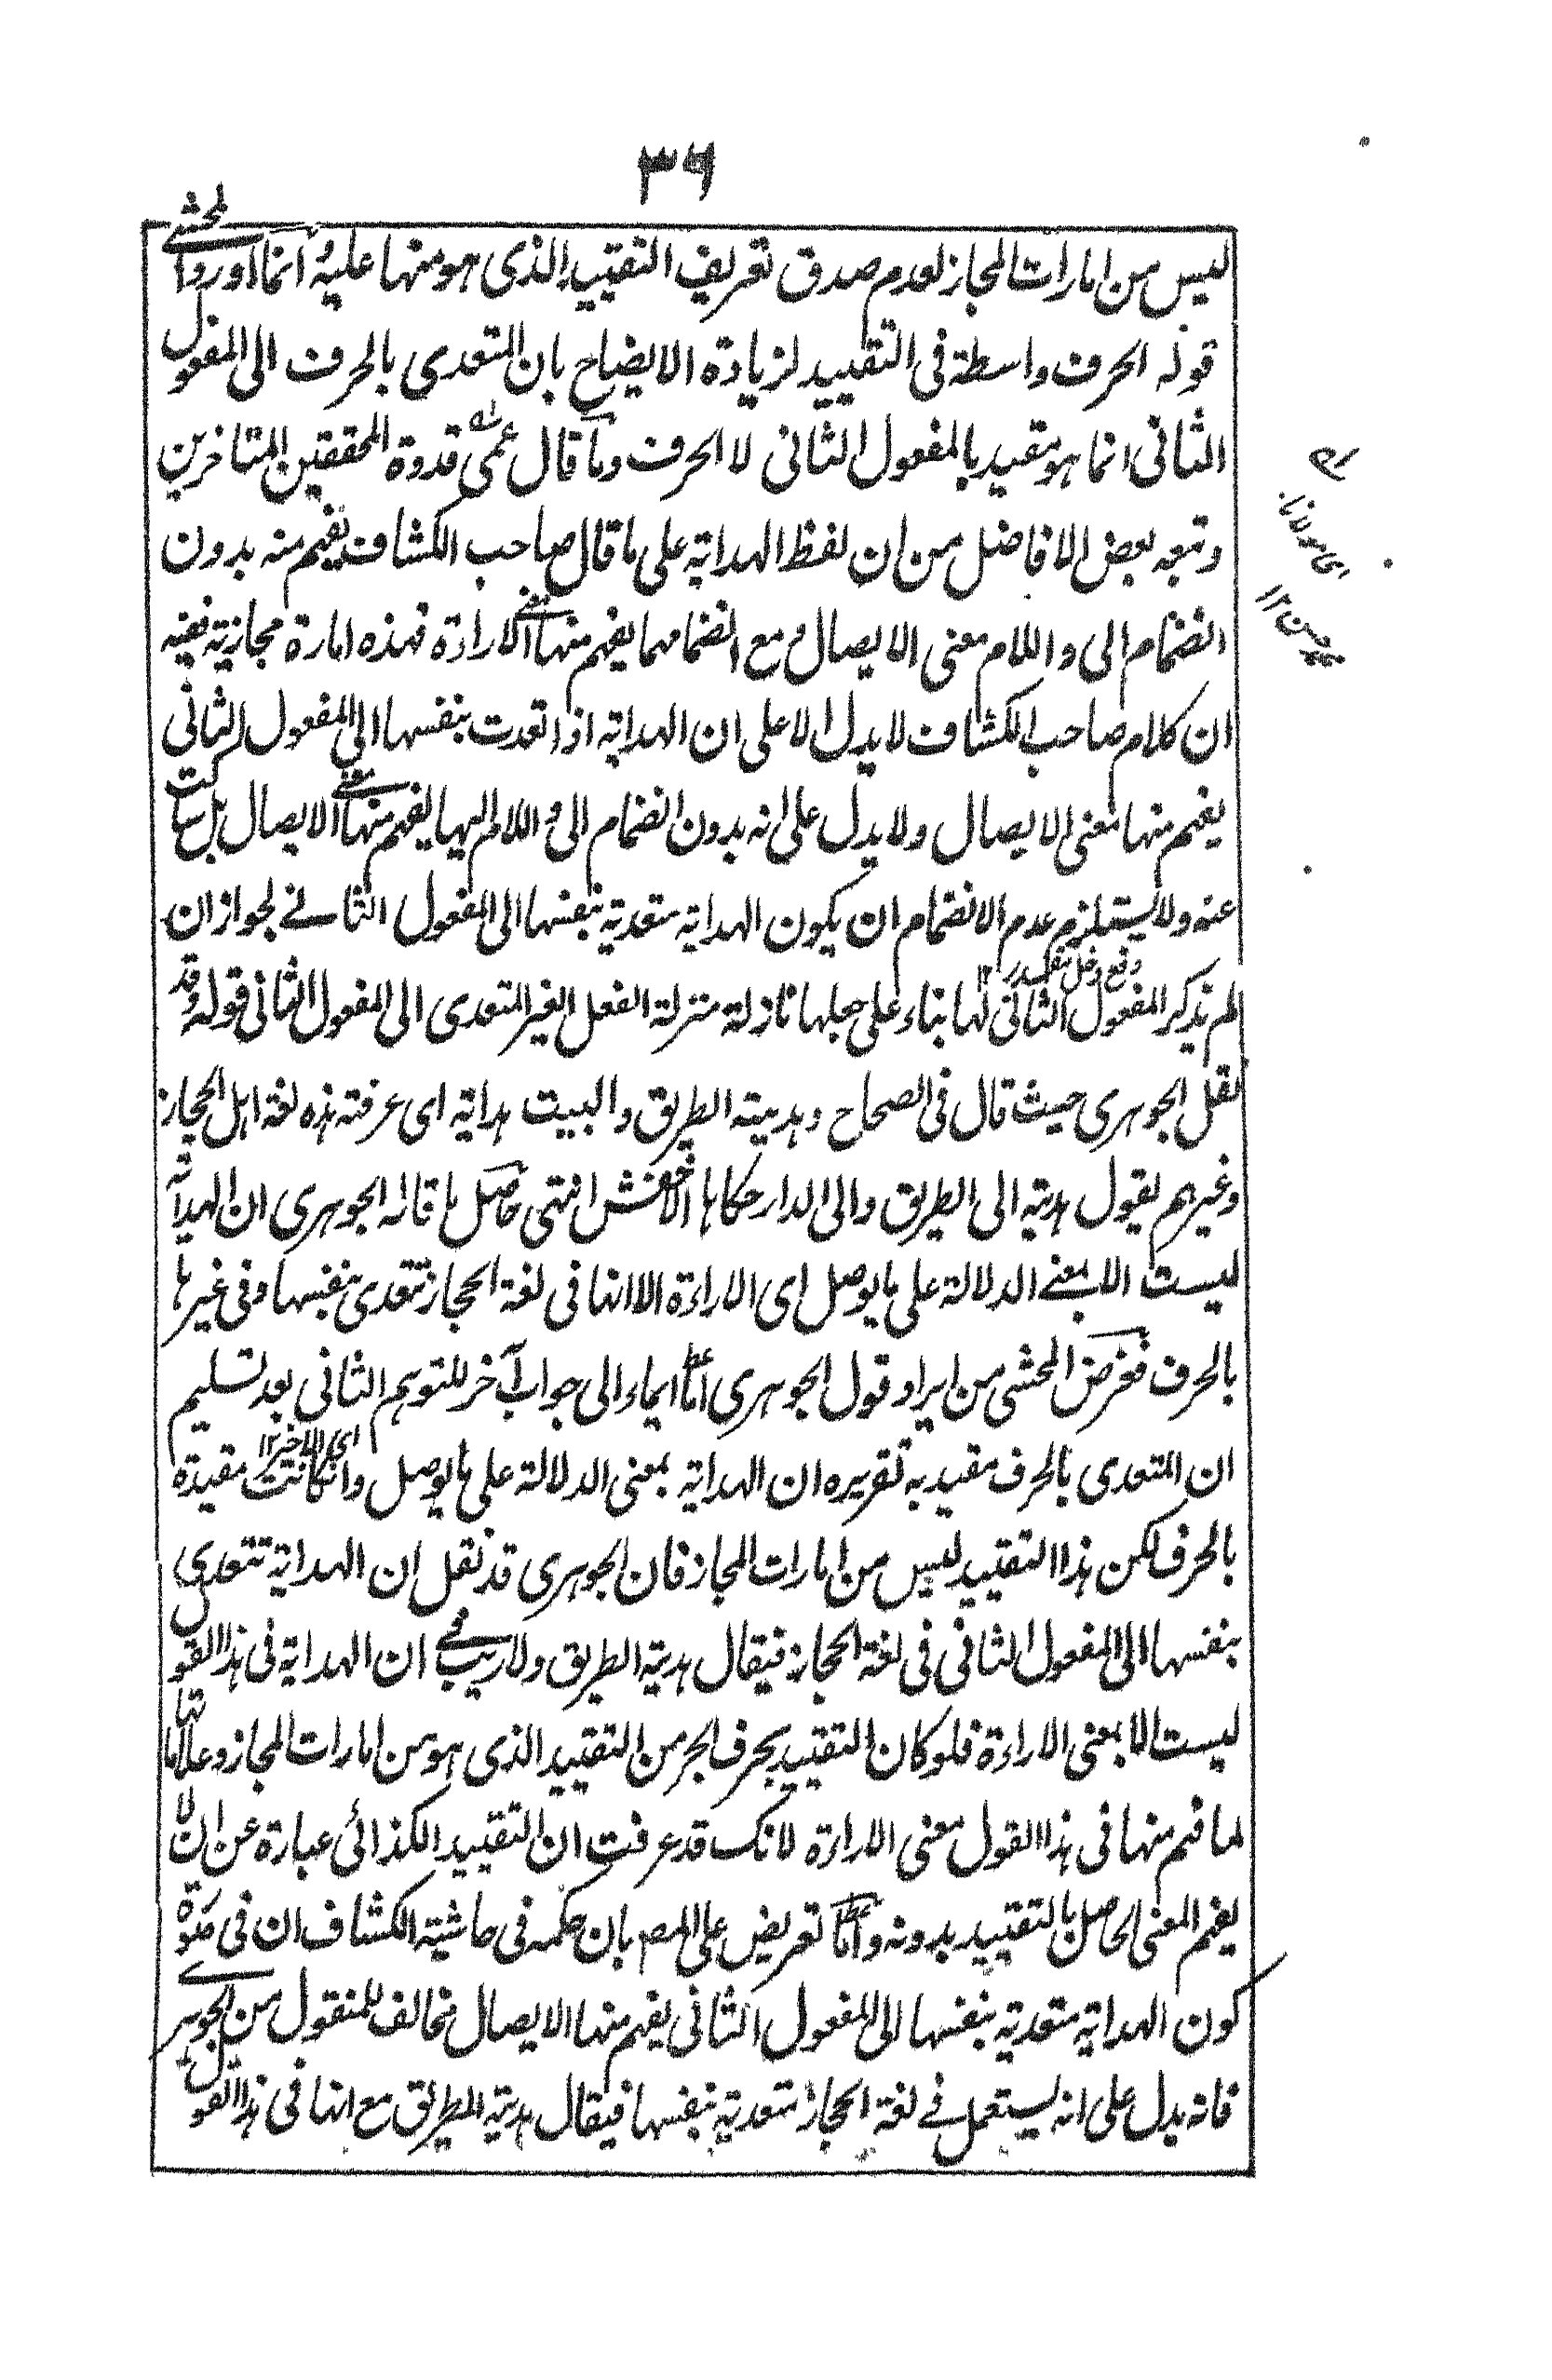 ٣٦
ليس من امارات المجاز لعدم صدق تعريف التقييد الذى هو منها عليه و انما اورد المحشى
قوله الحرف واسطة فى التقييد لزيادة الايضاح بان المتعدى بالحرف الى المفعول
الثانى انما هو مقيد بالمفعول الثانى لا الحرف وما قال عمى قدوة المحققين المتاخرين
وتبعه بعض الافاضل من ان لفظ الهداية على ما قال صاحب الكشاف يفهم منه بدون
انضمام الى واللام معنى الايصال ومع انضمامهما يفهم منها معنى الاراءة فهذه امارة مجازية ففيه
ان كلام صاحب الكشاف لا يدل الا على ان الهداية اذا تعدت بنفسها الى المفعول الثانى
يفهم منها معنى الايصال ولا يدل على انه بدون انضمام الى و اللام اليها يفهم منها معنى الايصال بل ساكت
عنه ولا يستلزم عدم الانضمام ان يكون الهداية متعدية بنفسها الى المفعول الثانى لجواز ان
دفع دخل مقدر ١٢
لم يذكر المفعول الثانى لها بناء على جعلها نازلة منزلة الفعل الغير المتعدى الى المفعول الثانى قوله وقد
نقل الجوهرى حيث قال فى الصحاح وهديته الطريق والبيت هداية اى عرفته هذه لغة اهل الحجاز
وغيرهم يقول هديته الى الطريق والى الدار حكاها الاخفش انتهى حاصل ما قاله الجوهرى ان الهداية
ليست الا بمعنى الدلالة على ما يوصل اى الاراءة الا انها فى لغة الحجاز تتعدى بنفسها وفى غيرها
بالحرف فغرض المحشى من ايراد قول الجوهرى اما ايماء الى جواب آخر للتوهم الثانى بعد تسليم
ان المتعدى بالحرف مقيد به تقريره ان الهداية بمعنى الدلالة على ما يوصل وان كانت مقيدة
بالحرف لكن هذا التقييد ليس من امارات المجاز فان الجوهرى قد نقل ان الهداية تتعدى
بنفسها الى المفعول الثانى فى لغة الحجاز فيقال هديته الطريق ولا ريب فى ان الهداية فى هذا القول
ليست الا بمعنى الاراءة فلو كان التقييد بحرف الجر من التقييد الذى هو من امارات المجاز وعلاماتها
لما فهم منها فى هذا القول معنى الاراءة لانك قد عرفت ان التقييد الكذائى عبارة عن ان لا
يفهم المعنى الحاصل بالتقييد بدونه واما تعريض على المصـ بان حكمه فى حاشية الكشاف ان فى صورة
كون الهداية متعدية بنفسها الى المفعول الثانى يفهم منها الايصال مخالف للمنقول من الجوهرى
فانه يدل على انه يستعمل فى لغة الحجاز متعدية بنفسها فيقال هديته الطريق مع انها فى هذا القول
اى مولانا